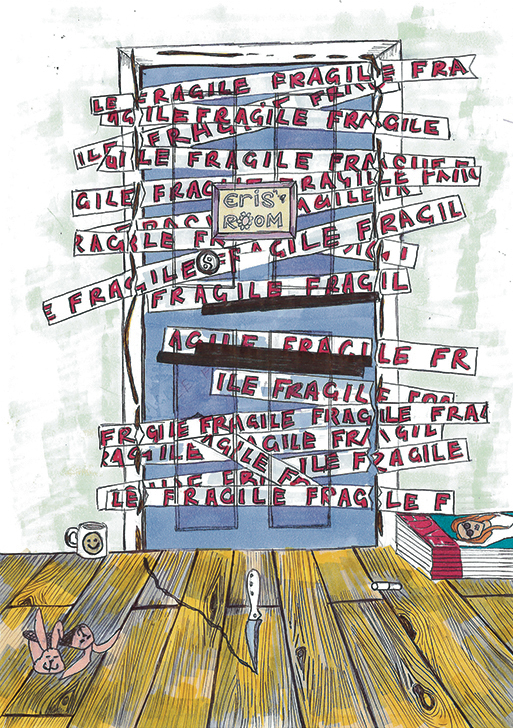 LE FRAGILE FRAGILE FRA
AGILE FRAGILE FRAGILE
FRAGILE
ILE GILE FRAGILE FRAGILE
GILE FRAGILE FRAGILE FRAGIL
ERIS'
ROOM
FRAGILE FRAGILE FRAGIL
E FRAGILE
FRAGILE FRAGIL
AGILE FRAGILE FR
ILE FRAGILE
FRAGILE FRAGILE FRAGILE FRA
FRAGILE FRAGILE FRAGILE
FRAGILE FRAGILE
LE FRAGILE FRAGILE F